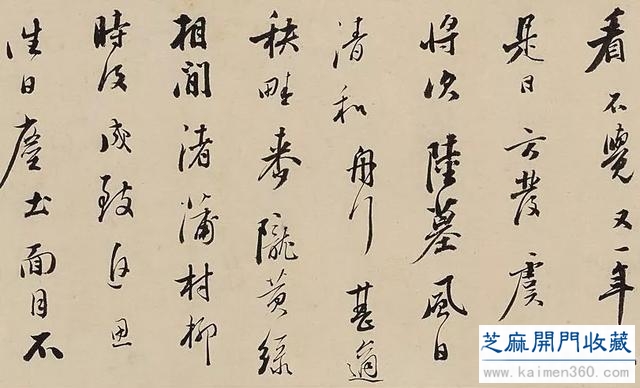 看不覺又一年
是日方發虞
將次陸墓風日
清和舟行甚適
秧畦麥隴黄綠
相間渚蒲村柳
時復成致追思
往日塵土面目不
芝麻開門收藏
www.kaimen360.com